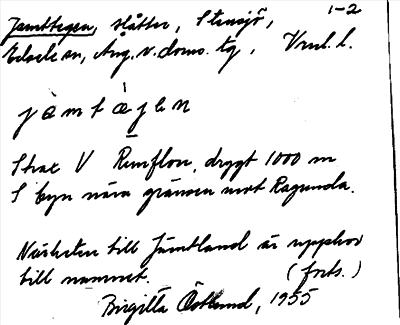 1-2
Jämttegen, slåtter, Stensjö,
Edsele sn, Ång. v. doms. tg, Vrnl. l.
jämtàjen
Strax V Remflon, drygt 1000 m
S byn nära gränsen mot Ragunda.
Närheten till Jämtland är upphov
till namnet. (forts.)
Birgitta Östlund, 1955